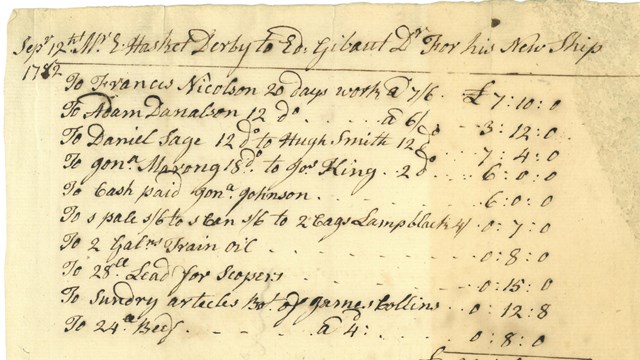 Sepr 12th Mr E: Hasket Derby to Ed: Gibaut Dr For his New Ship
1782
To Francis Nicolson 20 days work a 7/6 £ 7:10:0
To Adam Danalson 12 do . . . a 6/ . . 3:12:0
To Daniel Sage 12 do to Hugh Smith 12 do . . 7:4:0
To Jona Marong 18 do to Jos King . 2 do . . 6:0:0
To Cash paid Jona Johnson . . . . 6:0:0
To 1 pale 1/6 to 1 Can 1/6 to 2 Cags Lampblack 4/ 0:7:0
To 2 Galns Train oil . . . . 0:8:0
To 28 lb Lead for Scopers . . . . 0:15:0
To Sundry articles Bot of James Collins . . 0:12:8
To 24 lb Beef . . . . a 4d: . . . 0:8:0